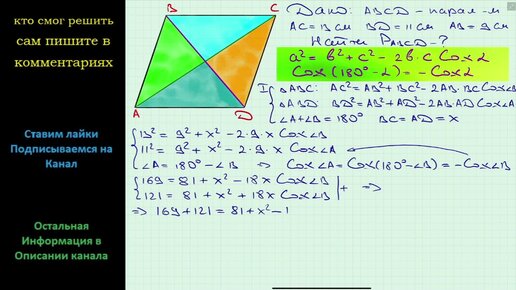 кто смог решить
сам пишите в
комментариях
Ставим лайки
Подписываемся на
Канал
Остальная
Информация в
Описании канала
B C
A D
Дано: ABCD - парал-м
AC = 13 см BD = 11 см AB = 9 см
Найти P ABCD - ?
a² = b² + c² - 2b·c Cos α
Cos(180° - α) = - Cos α
I △ABC: AC² = AB² + BC² - 2AB·BC Cos∠B
△ABD BD² = AB² + AD² - 2AB·AD Cos∠A
∠A + ∠B = 180° BC = AD = x
13² = 9² + x² - 2·9·x Cos∠B
11² = 9² + x² - 2·9·x Cos∠A
∠A = 180° - ∠B ⇒ Cos∠A = Cos(180° - ∠B) = - Cos∠B
169 = 81 + x² - 18x Cos∠B
121 = 81 + x² + 18x Cos∠B | + ⇒
⇒ 169 + 121 = 81 + x² - 1